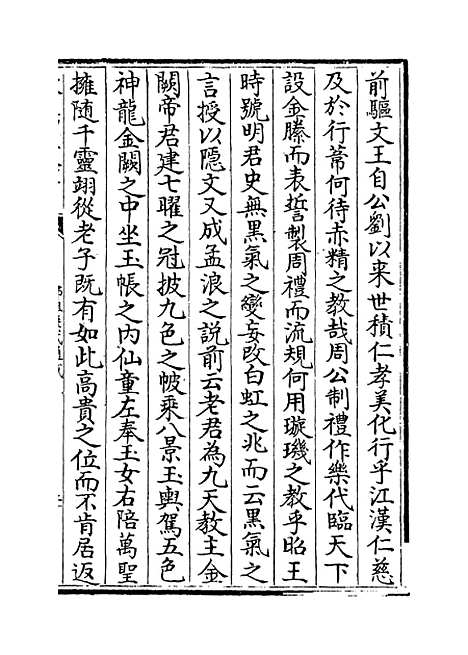 前驅文王自公劉以来世積仁孝美化行乎江漢仁慈
及於行葦何待赤精之教哉周公制禮作樂代臨天下
設金縢而表誓製周禮而流規何用璇璣之教乎昭王
時號明君史無黑氣之變妄改白虹之兆而云黒氣之
言授以隱文又成孟浪之說前云老君為九天教主金
闕帝君建七曜之冠披九色之帔乘八景玉輿駕五色
神龍金闕之中坐玉帳之内仙童左奉玉女右陪萬聖
擁随千靈翊從老子既有如此高貴之位而不肯居返